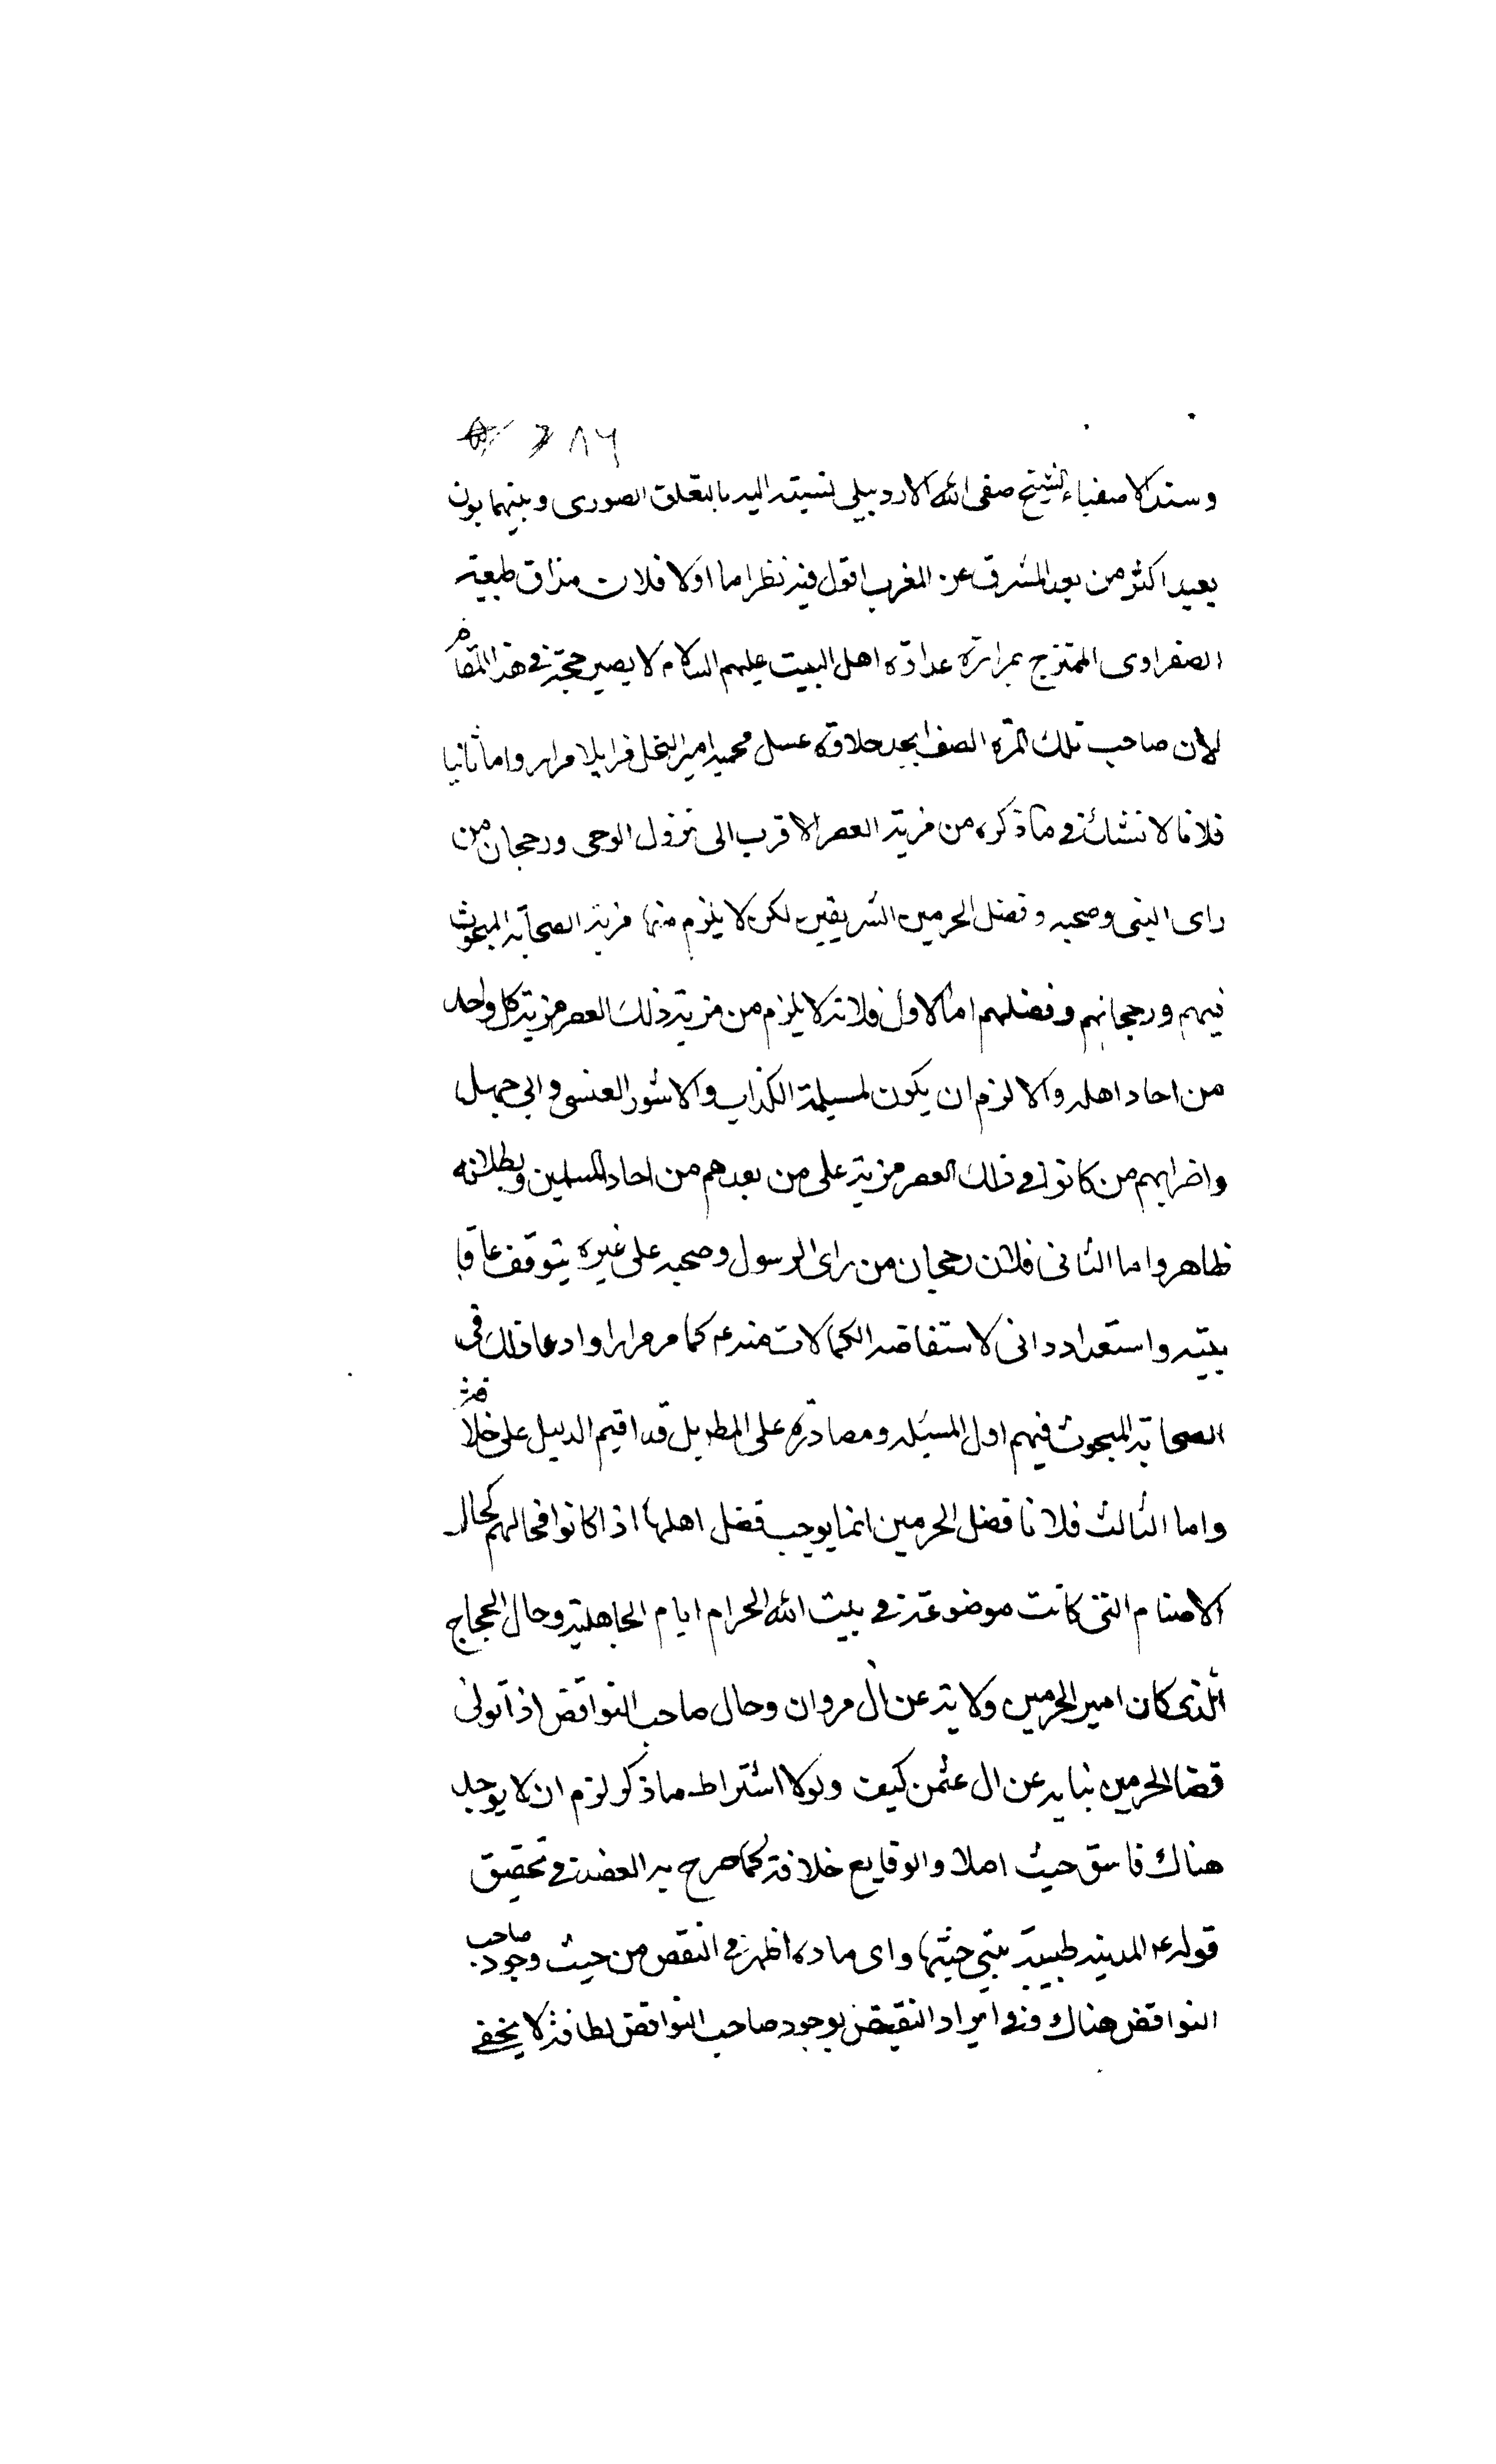 ٨٦
وسند الاصفياء الشيخ صفى الله الاردبيلى نسبته اليه بالتعلق الصورى وبينهما بون
بعيد اكثر من بعد المشرق عن المغرب اقول فيه نظر اما اولا فلان مذاق طبعه
الصفراوى الممتزج بمرارة عداوة اهل البيت عليهم السلام لا يصير حجة فى هذا المقام
لان صاحب تلك المرة الصفرا يجد حلاوة عسل محميه امير النحل مرارا واما ثانيا
فلانا لا نشك فى ما ذكره من مزية العصر الاقرب الى نزول الوحى ورجحان من
راى النبى وصحبه وفضل الحرمين الشريفين لكن لا يلزم منها مزية الصحابة المبحوث
فيهم ورجحانهم وفضلهم اما الاول فلانه لا يلزم من مزية ذلك العصر مزية كل واحد
من احاد اهله والا لزم ان يكون لمسيلمة الكذاب والاسود العنسى وابى جهل
واضرابهم من كانوا فى ذلك العصر مزية على من بعدهم من احاد المسلمين وبطلانه
ظاهر واما الثانى فلان رجحان من راى الرسول وصحبه على غيره يتوقف على قا
بلية واستعداد ذاتى لاستفاضه الكمالات منه عم كما مر مرارا وادعا ذلك فى
الصحابة المبحوث فيهم اول المسئله ومصادرة على المط بل قد اقيم الدليل على خلافه
واما الثالث فلانا فضل الحرمين انما يوجب فضل اهلها اذا كانوا فحالهم كحال
الاصنام التى كانت موضوعة فى بيت الله الحرام ايام الجاهلية وحال الحجاج
الذى كان امير الحرمين ولاية عن آل مروان وحال صاحب النواقض اذ اتولى
قضا الحرمين نيابه عن ال عثمن كيف ولولا اشتراط ما ذكر لزم ان لا يوجد
هناك فاسق حيث اصلا والوقايع خلافه كما صرح به العضد فى تحقيق
قوله عم المدينه طيبة تنفى خبثها واى ماده اظهر فى النقص من حيث وجود صاحب
النواقض هناك وفى ايراد النقض بوجود صاحب النواقض لطافة لا يخفى